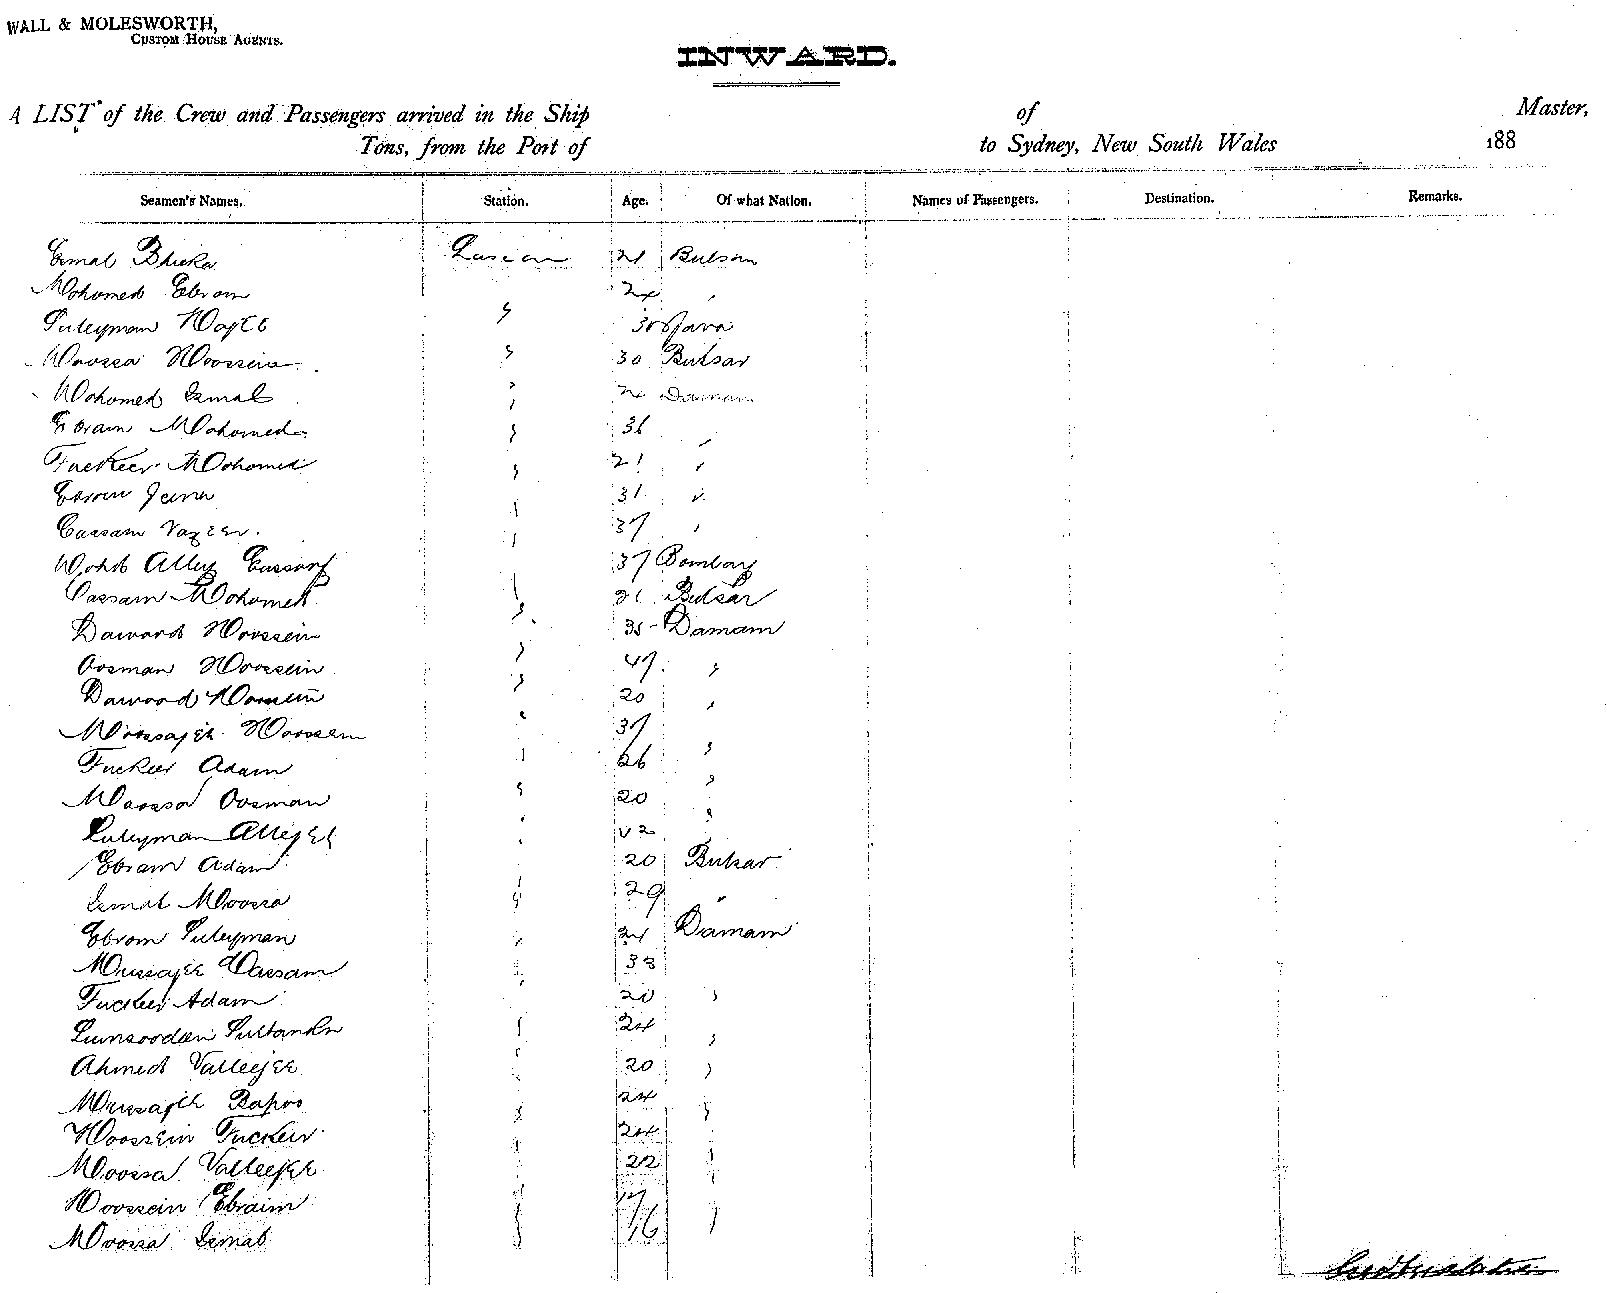 WALL & MOLESWORTH,
CUSTOM HOUSE AGENTS.
INWARD.
A LIST of the Crew and Passengers arrived in the Ship of Master,
Tons, from the Port of to Sydney, New South Wales 188
Seamen's Names. Station. Age. Of what Nation. Names of Passengers. Destination. Remarks.
Esmal Bhicka Lascar 21 Bulsar
Mohomed Ebram 24
Suleyman 30 Java
Moossa Hoossein 30 Bulsar
Mohomed Esmal Damam
Ebram Mohomed 36
Fuckeer Mohomed 21
Ebram 31
Cassam 37
Alley 37 Bombay
Cassam Mohomed 21 Bulsar
Dawood Hoossein 35 Damam
Oosman Hoossein 47
Dawood Hoossein 20
Moossajee Hoossein 37
Fuckeer Adam 26
Moossa Oosman 20
Suleyman Allejee
Ebram Adam 20 Bulsar
Esmal Moossa 29
Ebrom Suleyman Damam
Mussajee Cassam 33
Fuckeer Adam 20
24
Ahmed Valleejee 20
Mussajee Bapoo 24
Hoossein Fuckeer 24
Moossa Valleejee 22
Hoossein Ebraim 17
Moossa Esmal 16